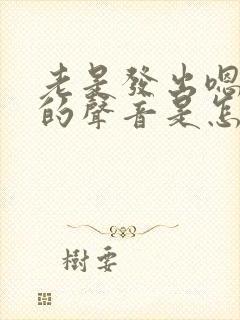 老是發出嗯
的聲音是怎
樹要